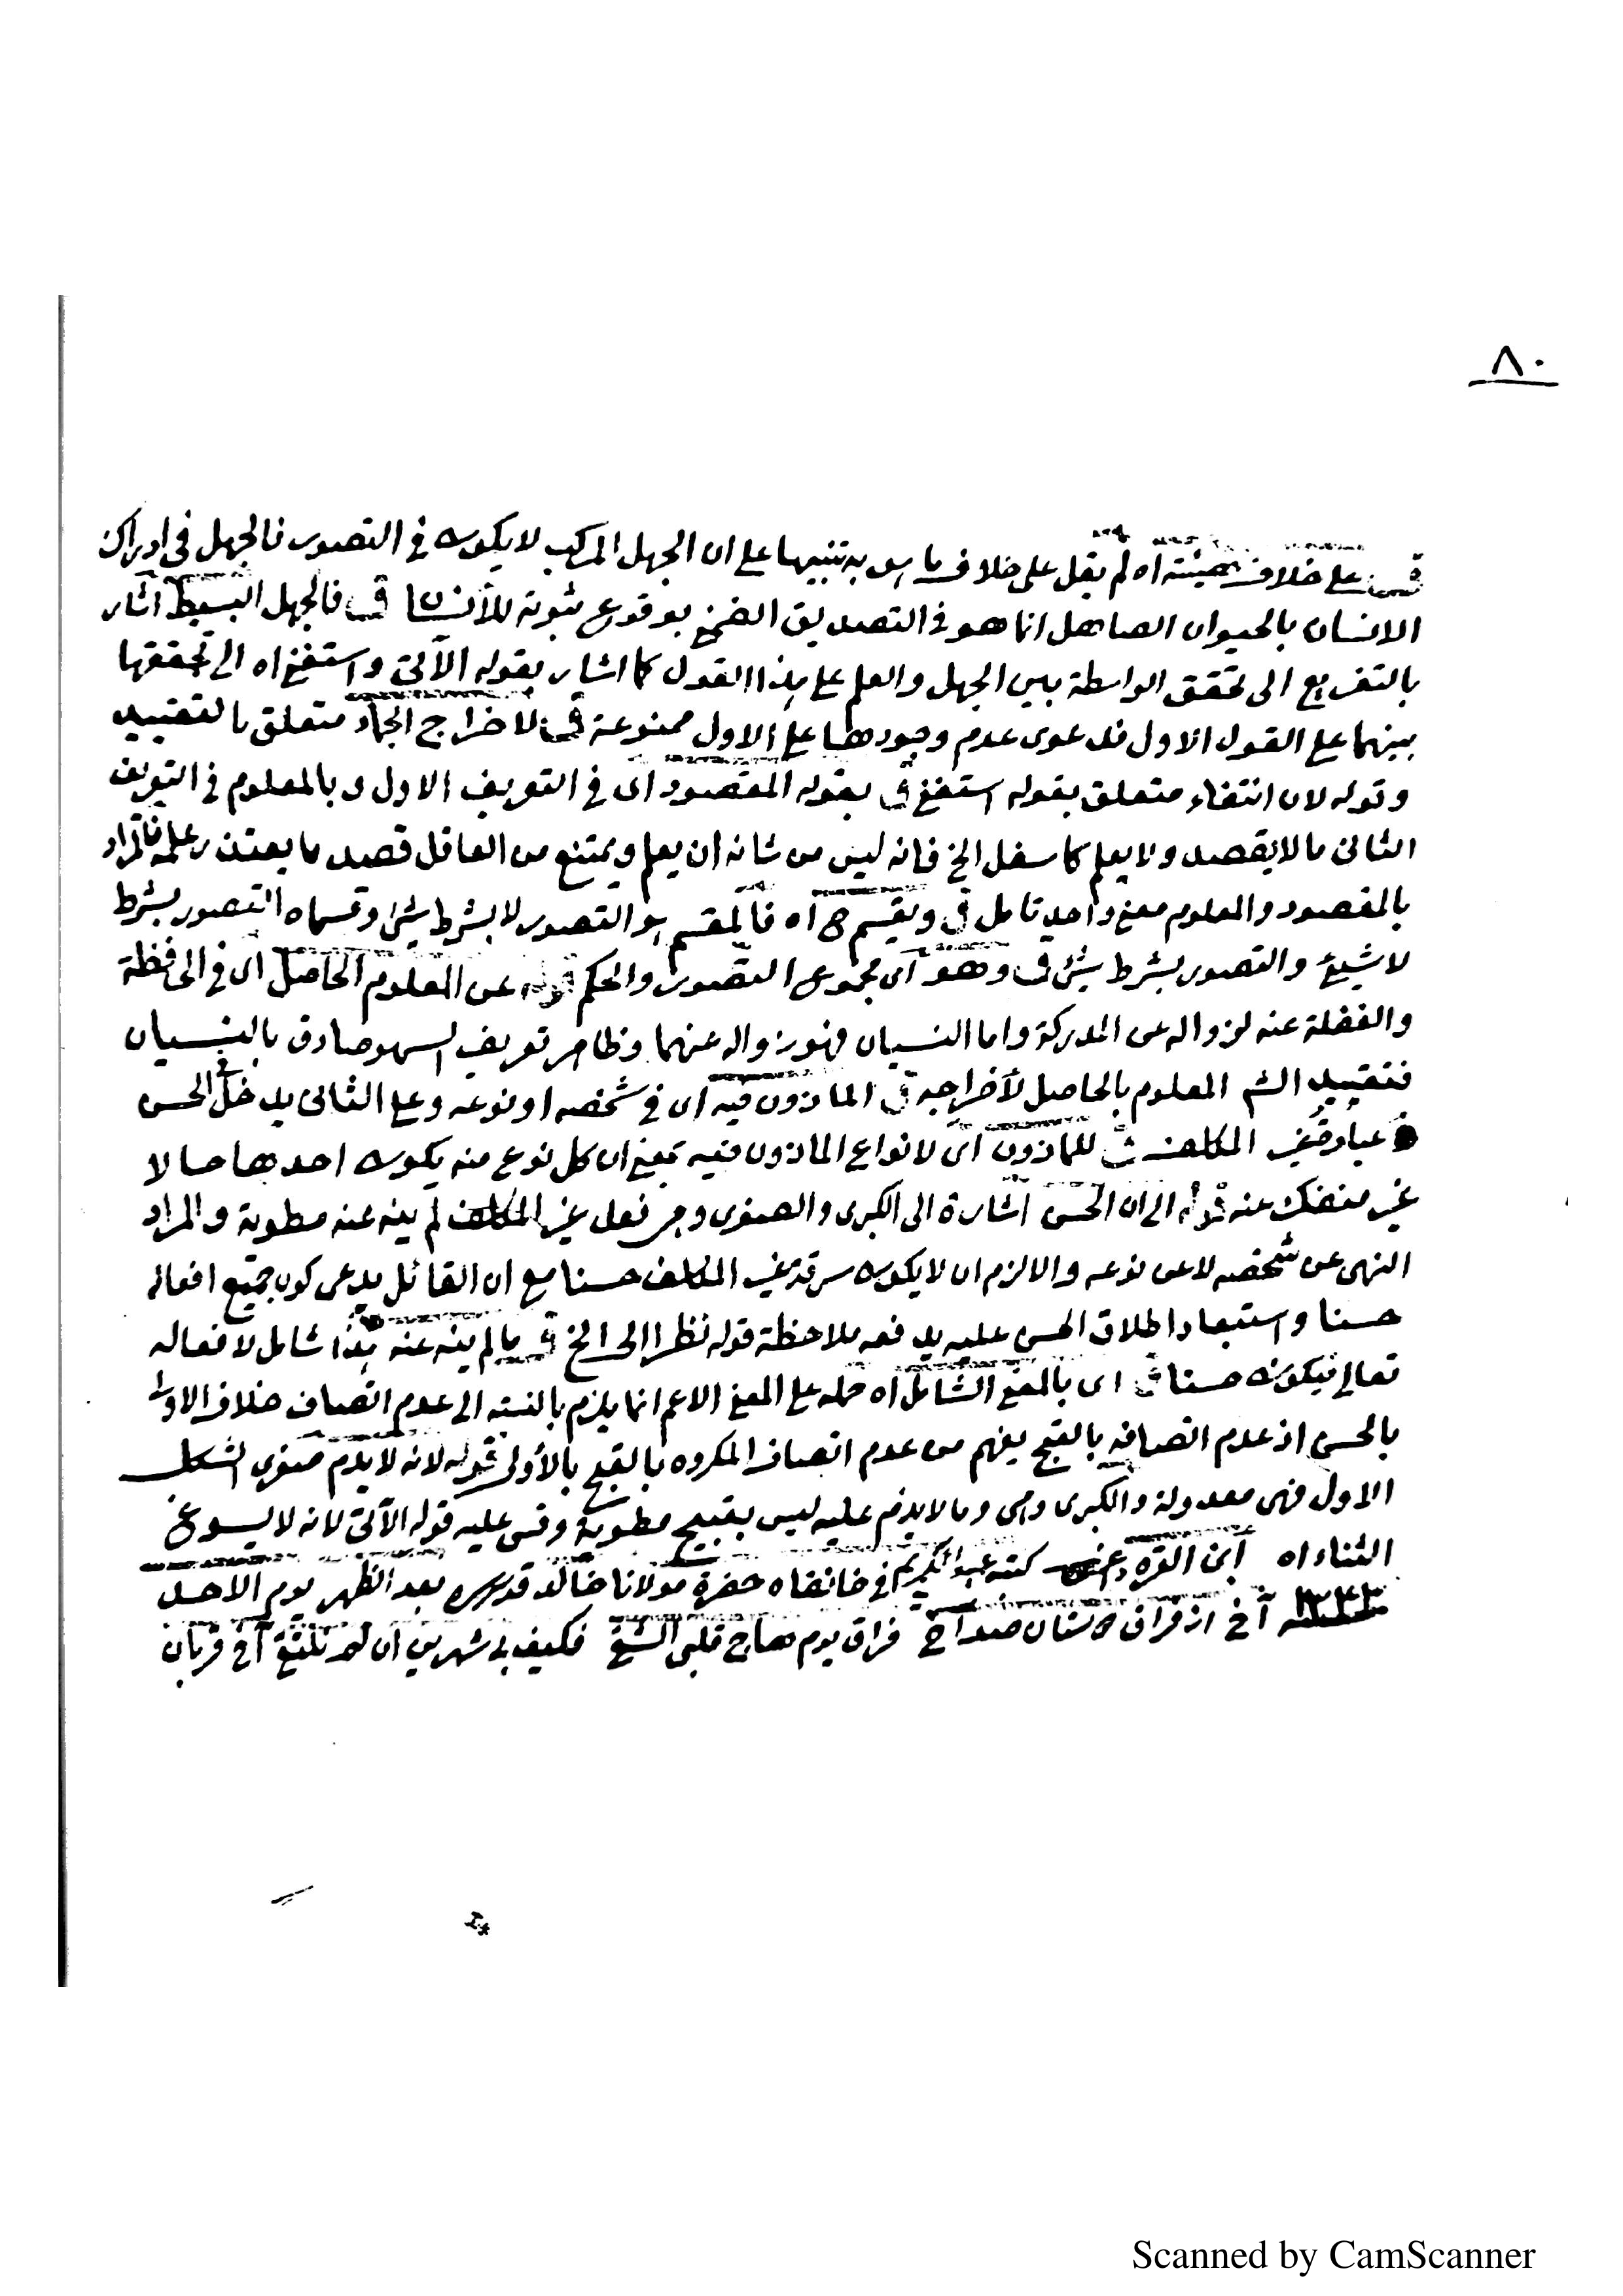 ٨٠
قى على خلاف هيئته اه لم يقل على خلاف ما هو به تنبيها على ان الجهل المركب لا يكون في التصور فالجهل في ادراك
الانسان بالحيوان الصاهل انما هو في التصديق الضمنى بوقوع ثبوته للأنسان قى فالجهل البسيط اشار
بالتفريع الى تحقق الواسطة بين الجهل والعلم على هذا القول كما اشار بقوله الآتى واستغنى اه الى تحققها
بينهما على القول الاول فدعوى عدم وجودها على الاول ممنوعة قى لاخراج الجماد متعلق بالتقييد
وقوله لان انتفاء متعلق بقوله استغنى قى بقوله المقصود اى في التعريف الاول وبالمعلوم في التعريف
الثانى ما لا يقصد ولا يعلم كاسفل الخ فانه ليس من شانه ان يعلم ويمتنع من العاقل قصد ما يعتذر علمه فالمراد
بالمقصود والمعلوم معنى واحد تامل قى ويقسم ح اه فالمقسم هو التصور لا بشرط شئ وقسماه التصور بشرط
لا شيئ والتصور بشرط شئ قى وهو اى مجموع التصور والحكم قوله عن المعلوم الحاصل اى في الحافظة
والغفلة عنه لزواله عن المدركة واما النسيان فهو زواله عنهما وظاهر تعريف السهو صادق بالنسيان
فتقييد الش المعلوم بالحاصل لأخراجه قى المأذون فيه اى في شخصه او نوعه وعلى الثانى يدخل في الحسن
عبادة غير المكلف قى للمأذون اى لانواع المأذون فيه بمعنى ان كل نوع منه يكون احدها حالا
غير منفك عنه قوله الى ان الحسن اشارة الى الكبرى والصغرى وهى فعل غير المكلف لم ينه عنه مطوية والمراد
النهى عن شخصه لا عن نوعه والا لزم ان لا يكون سرقة غير المكلف حسنا مع ان القائل يدعى كون جميع افعاله
حسنا واستبعاد اطلاق الحسن عليه يدفعه ملاحظة قوله نظرا الى الخ قى ما لم ينه عنه هذا شامل لافعاله
تعالى فيكون حسنا قى اى بالمعنى الشامل اه حمله على المعنى الاعم انما يلزم بالنسبه الى عدم اتصاف خلاف الاولى
بالحسن اذ عدم اتصافه بالقبح يفهم من عدم اتصاف المكروه بالقبح بالأولى قوله لانه لا يذم صغرى الشكل
الاول فهى معدولة والكبرى وهى وما لا يذم عليه ليس بقبيح مطوية وقس عليه قوله الآتى لانه لا يسوغ
الثناء اه ابن القره داغى كتبه عبد الكريم في خانقاه حضرة مولانا خالد قدس سره بعد الظهر يوم الاحد
١٣٤٣ آخ از فراق دوستان صد آخ فراق يوم هاج قلبى الشيخ فكيف بى شهرين ان لم تلتغ آخ قربان
Scanned by CamScanner